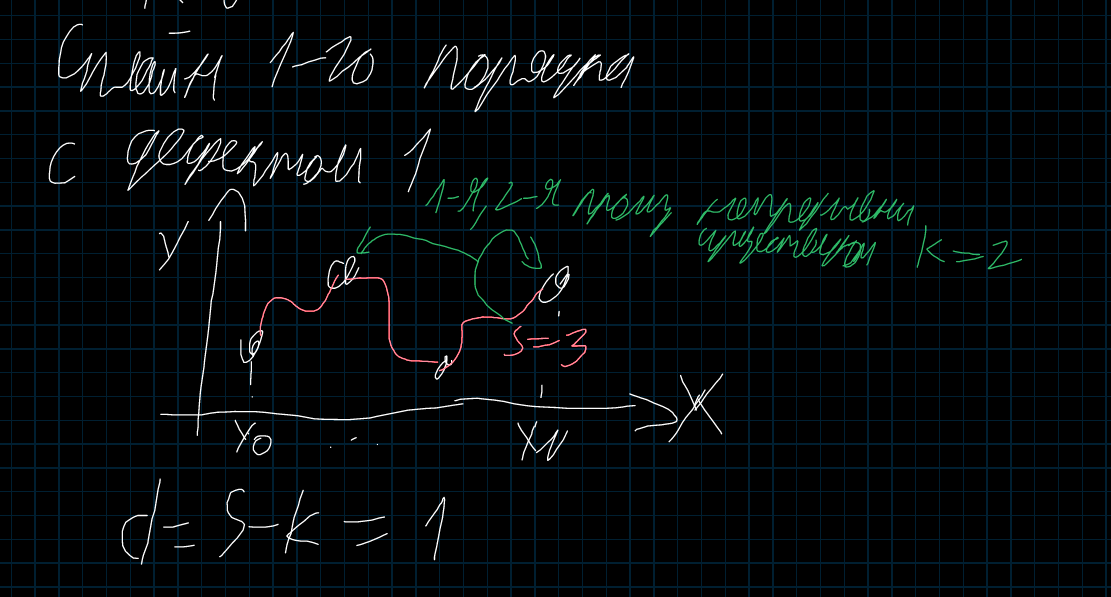 Сплайн 1-го порядка
с дефектом 1
1-я, 2-я произ непрерывны
существуют k=2
Y
S=3
X
X0 ... XN
d=S-k=1